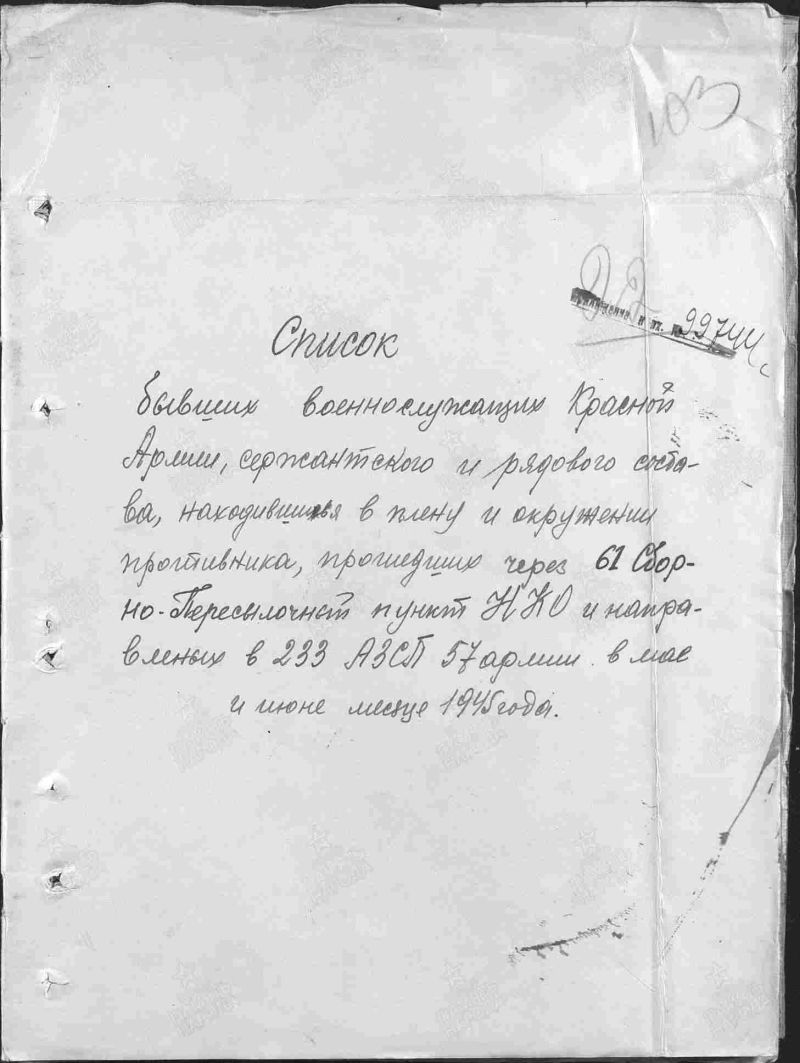 103
Приложение к вх. № 99744с
Список
бывших военнослужащих Красной
Армии, сержантского и рядового соста-
ва, находившихся в плену и окружении
противника, прошедших через 61 Сбор-
но-Пересылочный пункт НКО и напра-
вленых в 233 АЗСП 57 армии в мае
и июне месяце 1945 года.